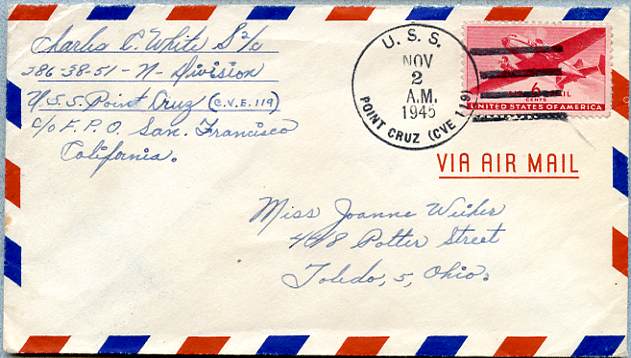 Charles C. White S2/c
286-38-51-N-Division
U.S.S. Point Cruz (C.V.E. 119)
c/o F.P.O. San. Francisco
California.
U. S. S.
NOV
2
A.M.
1945
POINT CRUZ (CVE 119)
6
CENTS
UNITED STATES OF AMERICA
VIA AIR MAIL
Miss Joanne
Potter Street
Toledo, 5, Ohio.